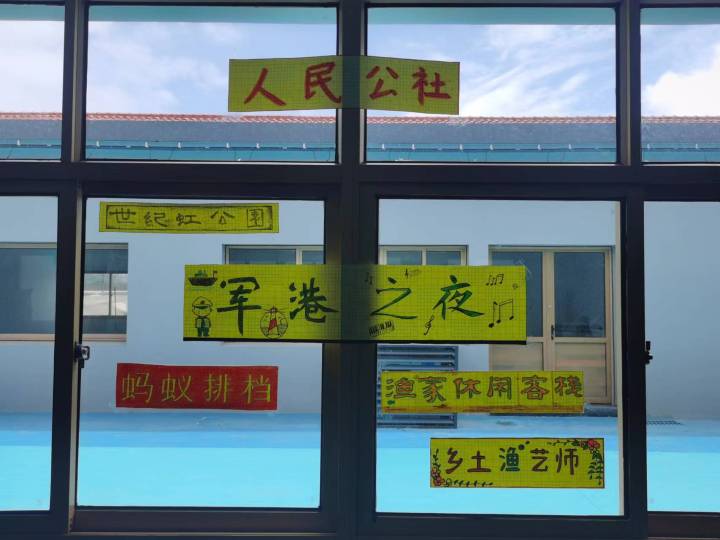 人民公社
世纪虹公园
军港之夜
蚂蚁排档
渔家休用客栈
乡土渔艺师